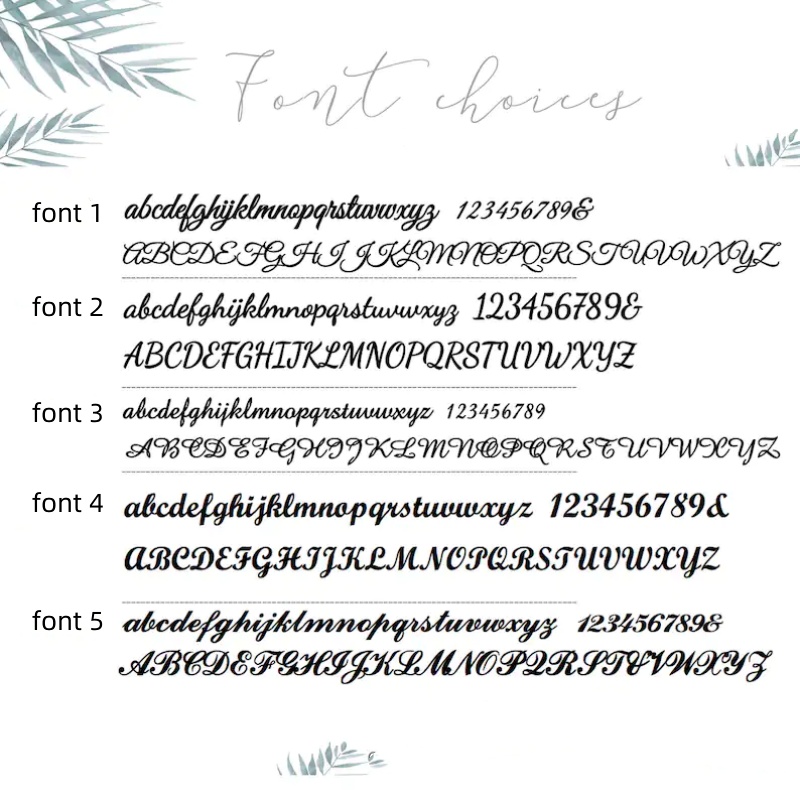 Font choices
font 1 abcdefghijklmnopqrstuvwxyz 123456789&
ABCDEFGHIJKLMNOPQRSTUVWXYZ
font 2 abcdefghijklmnopqrstuvwxyz 123456789&
ABCDEFGHIJKLMNOPQRSTUVWXYZ
font 3 abcdefghijklmnopqrstuvwxyz 123456789
ABCDEFGHIJKLMNOPQRSTUVWXYZ
font 4 abcdefghijklmnopqrstuvwxyz 123456789&
ABCDEFGHIJKLMNOPQRSTUVWXYZ
font 5 abcdefghijklmnopqrstuvwxyz 123456789&
ABCDEFGHIJKLMNOPQRSTUVWXYZ